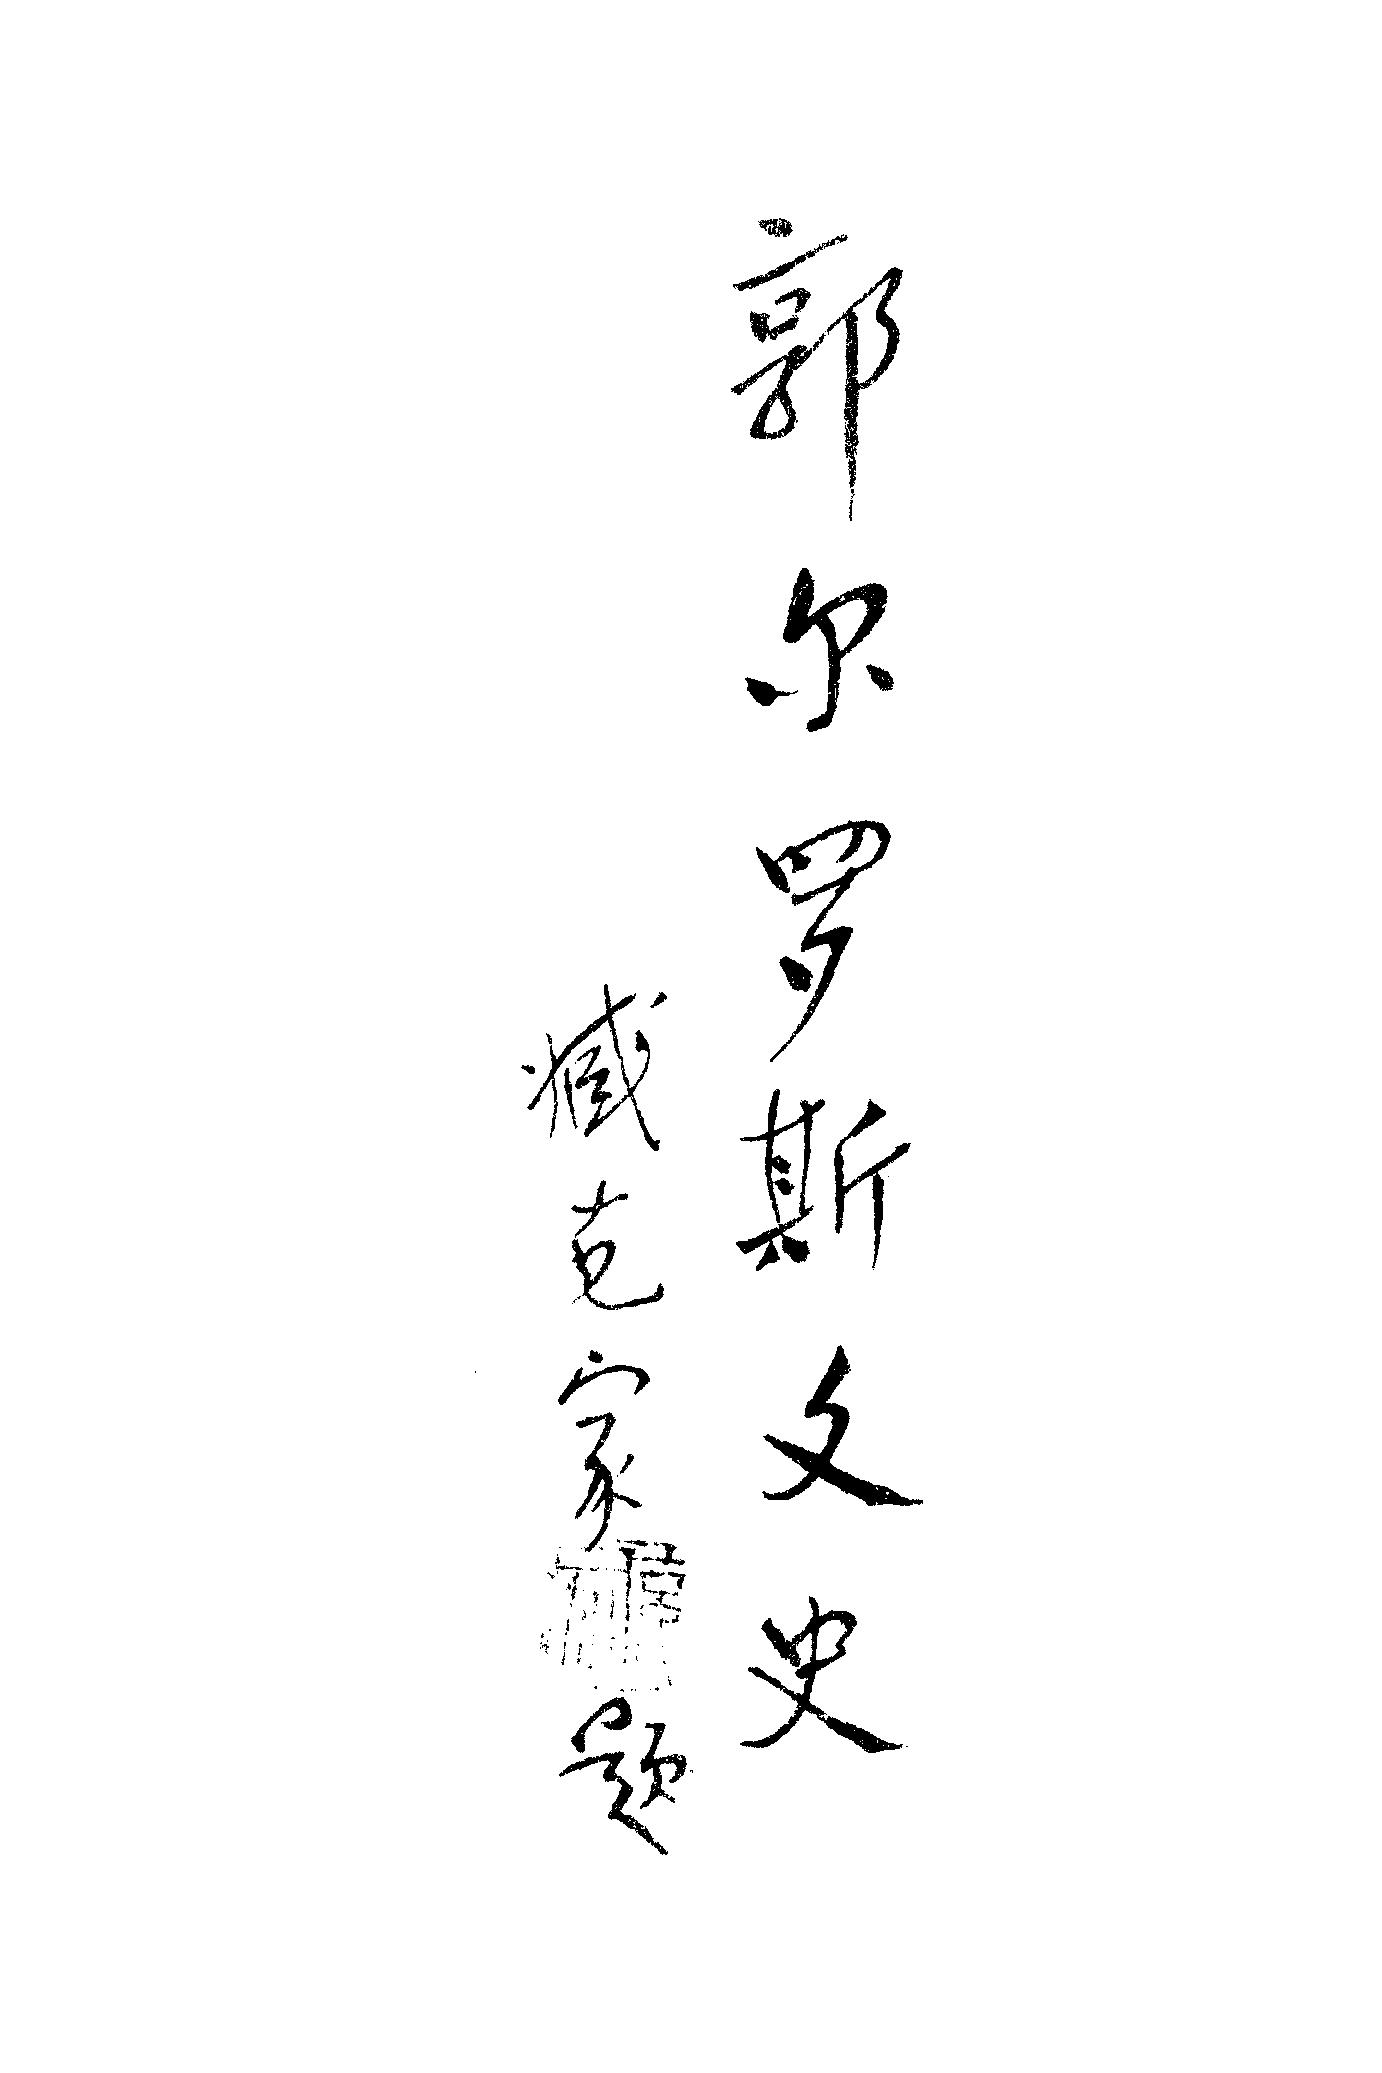 郭尔罗斯文史
臧克家题